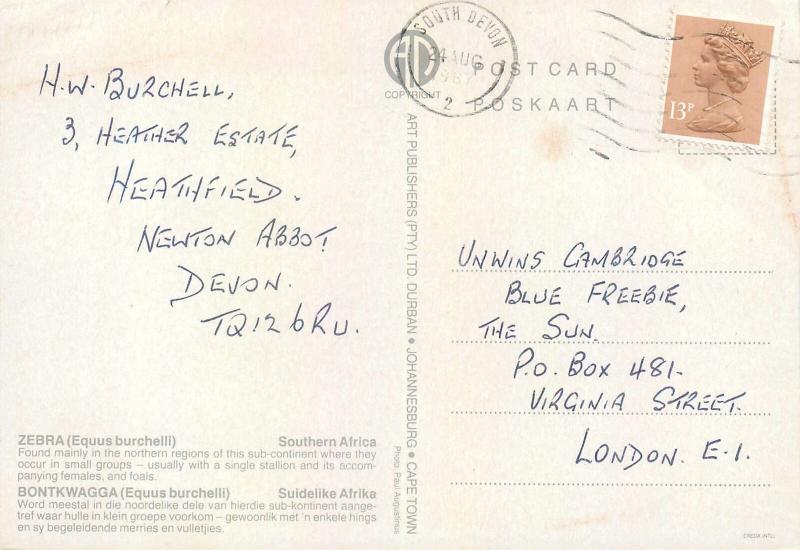 H.W. BURCHELL,
3, HEATHER ESTATE,
HEATHFIELD.
NEWTON ABBOT
DEVON.
TQ12 6RU.
ZEBRA (Equus burchelli) Southern Africa
Found mainly in the northern regions of this sub-continent where they
occur in small groups – usually with a single stallion and its accom-
panying females, and foals.
BONTKWAGGA (Equus burchelli) Suidelike Afrika
Word meestal in die noordelike dele van hierdie sub-kontinent aange-
tref waar hulle in klein groepe voorkom – gewoonlik met 'n enkele hings
en sy begeleidende merries en vulletjies.
COPYRIGHT
ART PUBLISHERS (PTY) LTD. DURBAN • JOHANNESBURG • CAPE TOWN
Photo: Paul Augustinus
SOUTH DEVON
24 AUG
2
POST CARD
POSKAART
13P
UNWINS CAMBRIDGE
BLUE FREEBIE,
THE SUN.
P.O. BOX 481.
VIRGINIA STREET.
LONDON. E.1.
CREDA INTL)